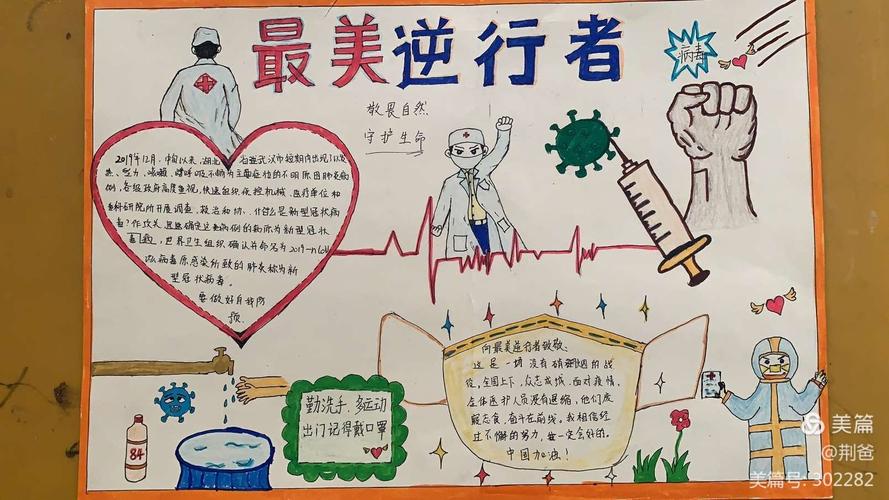 最美逆行者
病毒
敬畏自然
守护生命
2019年12月,中旬以来,湖北省武汉市短期内出现了以发
热、乏力、咳嗽、呼吸不畅为主要症状的不明原因肺炎病
例,各级政府高度重视,快速组织疾控机械、医疗单位和
科研院所开展调查、救治和协
病例的病原为新型冠状
世界卫生组织确认并命名为2019-nCoV
病毒原感染所致的肺炎称为新
型冠状病毒。
要做好自我防
预.
向最美逆行者致敬:
这是一场没有硝烟的战
役,全国上下,众志成城.面对疫情,
全体医护人员没有退缩,他们废
寝忘食,奋斗在前线。我相信经
过不懈的努力,一定会好的。
中国加油!
勤洗手.多运动
出门记得戴口罩
84
美篇
@荆爸
美篇号: 302282